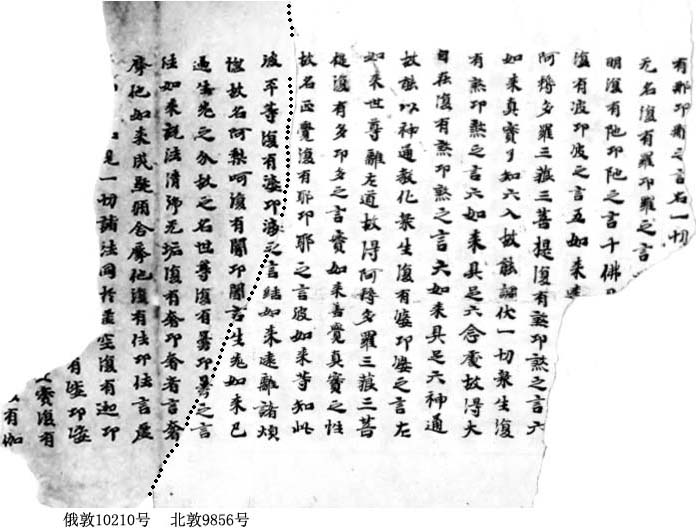 有那印那之言名一切
无名復有羅印羅之言
明復有陁印陁之言十佛
復有波印波之言五如来
阿耨多羅三藐三菩提復有煞印煞之言六
如来真實了知六入故能調伏一切衆生復
有煞印煞之言六如来具足六念處故得大
自在復有煞印煞之言六如来具足六神通
故能以神通教化衆生復有婆印婆之言左
如来世尊離左道故得阿耨多羅三藐三菩
提復有多印多之言實如来善覺真實之性
故名正覺復有耶印耶之言彼如来等知此
彼平等復有婆印婆之言結如来遠離諸煩
惱故名阿梨呵復有闍印闍言生死如来已
過生死之分故之名世尊復有曇印曇之言
法如来説法清浄无垢復有奢印奢者言奢
摩他如来成就頭舍摩他復有佉印佉言虚
見一切諸法同於虚空復有迦印
有娑印娑
實復有
有伽
俄敦10210号 北敦9856号